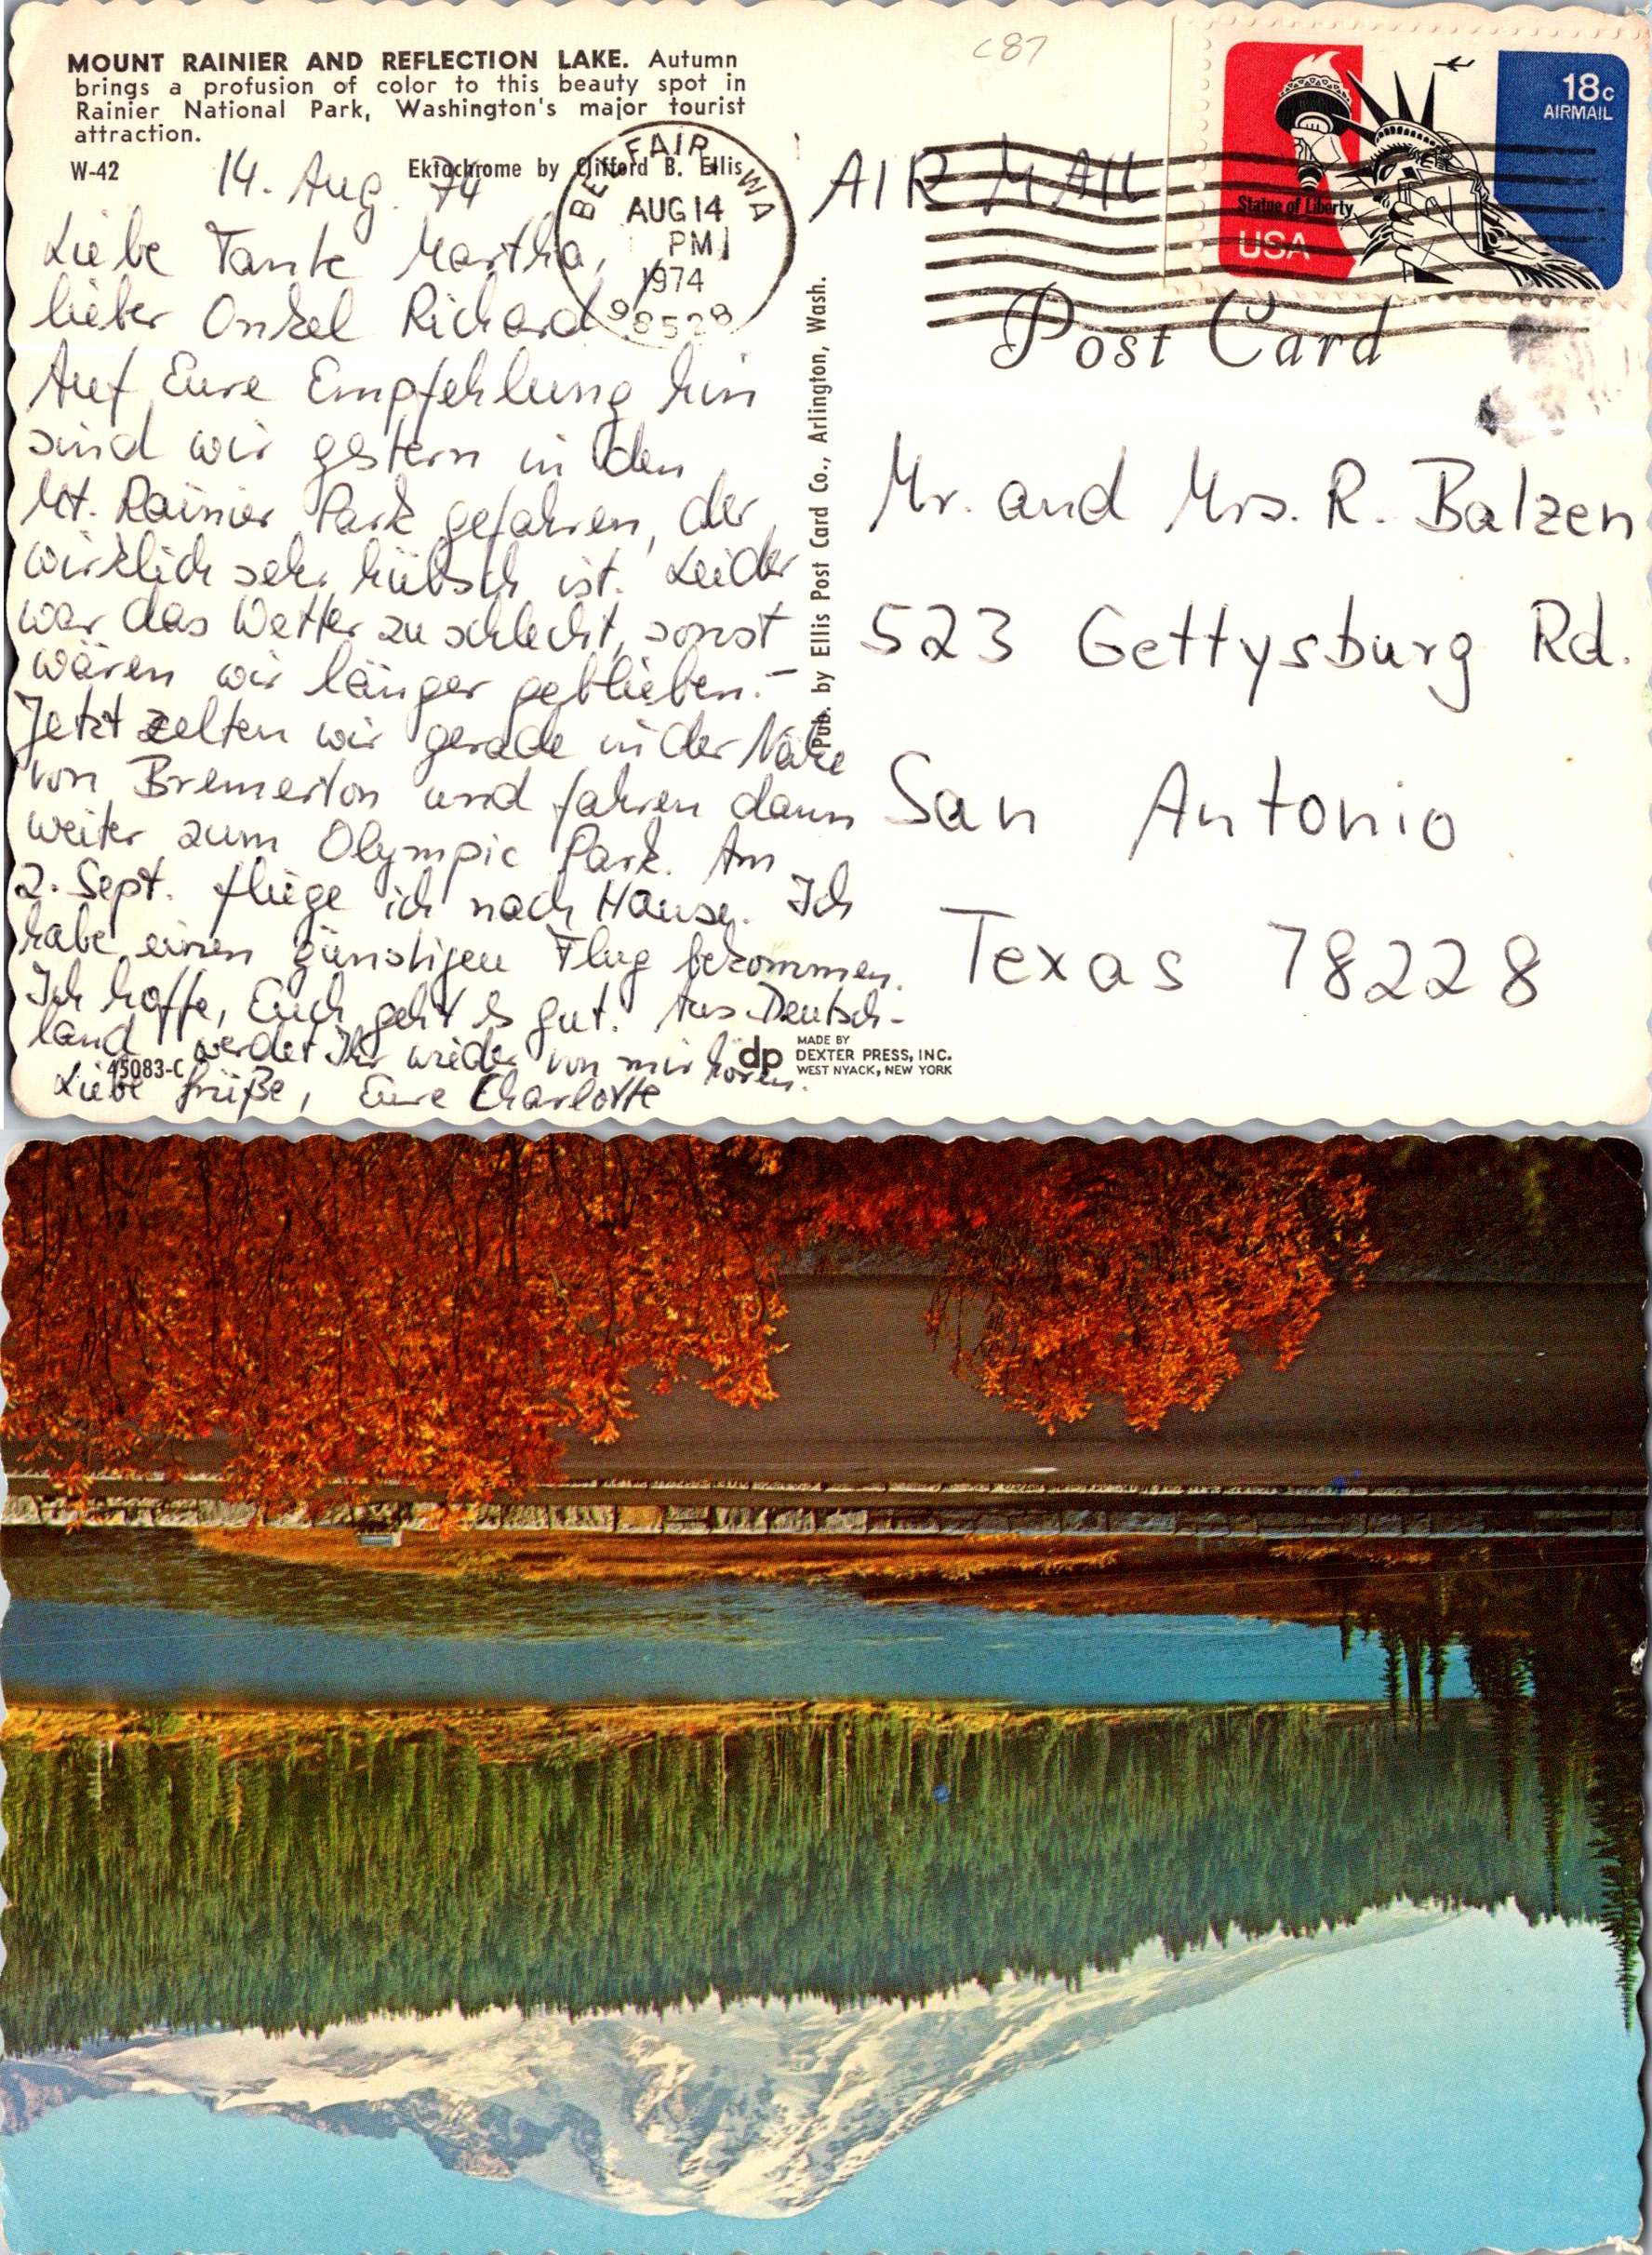 MOUNT RAINIER AND REFLECTION LAKE. Autumn
brings a profusion of color to this beauty spot in
Rainier National Park, Washington's major tourist
attraction.
W-42
Ektachrome by Clifford B. Ellis
14. Aug. 74
Liebe Tante Martha,
lieber Onkel Richard
Auf Eure Empfehlung hin
sind wir gestern in den
Mt. Rainier Park gefahren, der
wirklich sehr hübsch ist. Leider
war das Wetter zu schlecht, sonst
wären wir länger geblieben. -
Jetzt zelten wir gerade in der Nähe
von Bremerton und fahren dann
weiter zum Olympic Park. Am
2. Sept. fliege ich nach Hause. Ich
habe einen günstigen Flug bekommen.
Ich hoffe, Euch geht es gut. Aus Deutsch-
land werdet Ihr wieder von mir hören.
Liebe Grüße, Eure Charlotte
45083-C
BELFAIR, WA
AUG 14
PM
1974
98528
Pub. by Ellis Post Card Co., Arlington, Wash.
dp
MADE BY
DEXTER PRESS, INC.
WEST NYACK, NEW YORK
C87
AIR MAIL
18c
AIRMAIL
Statue of Liberty
USA
Post Card
Mr. and Mrs. R. Balzen
523 Gettysburg Rd.
San Antonio
Texas 78228